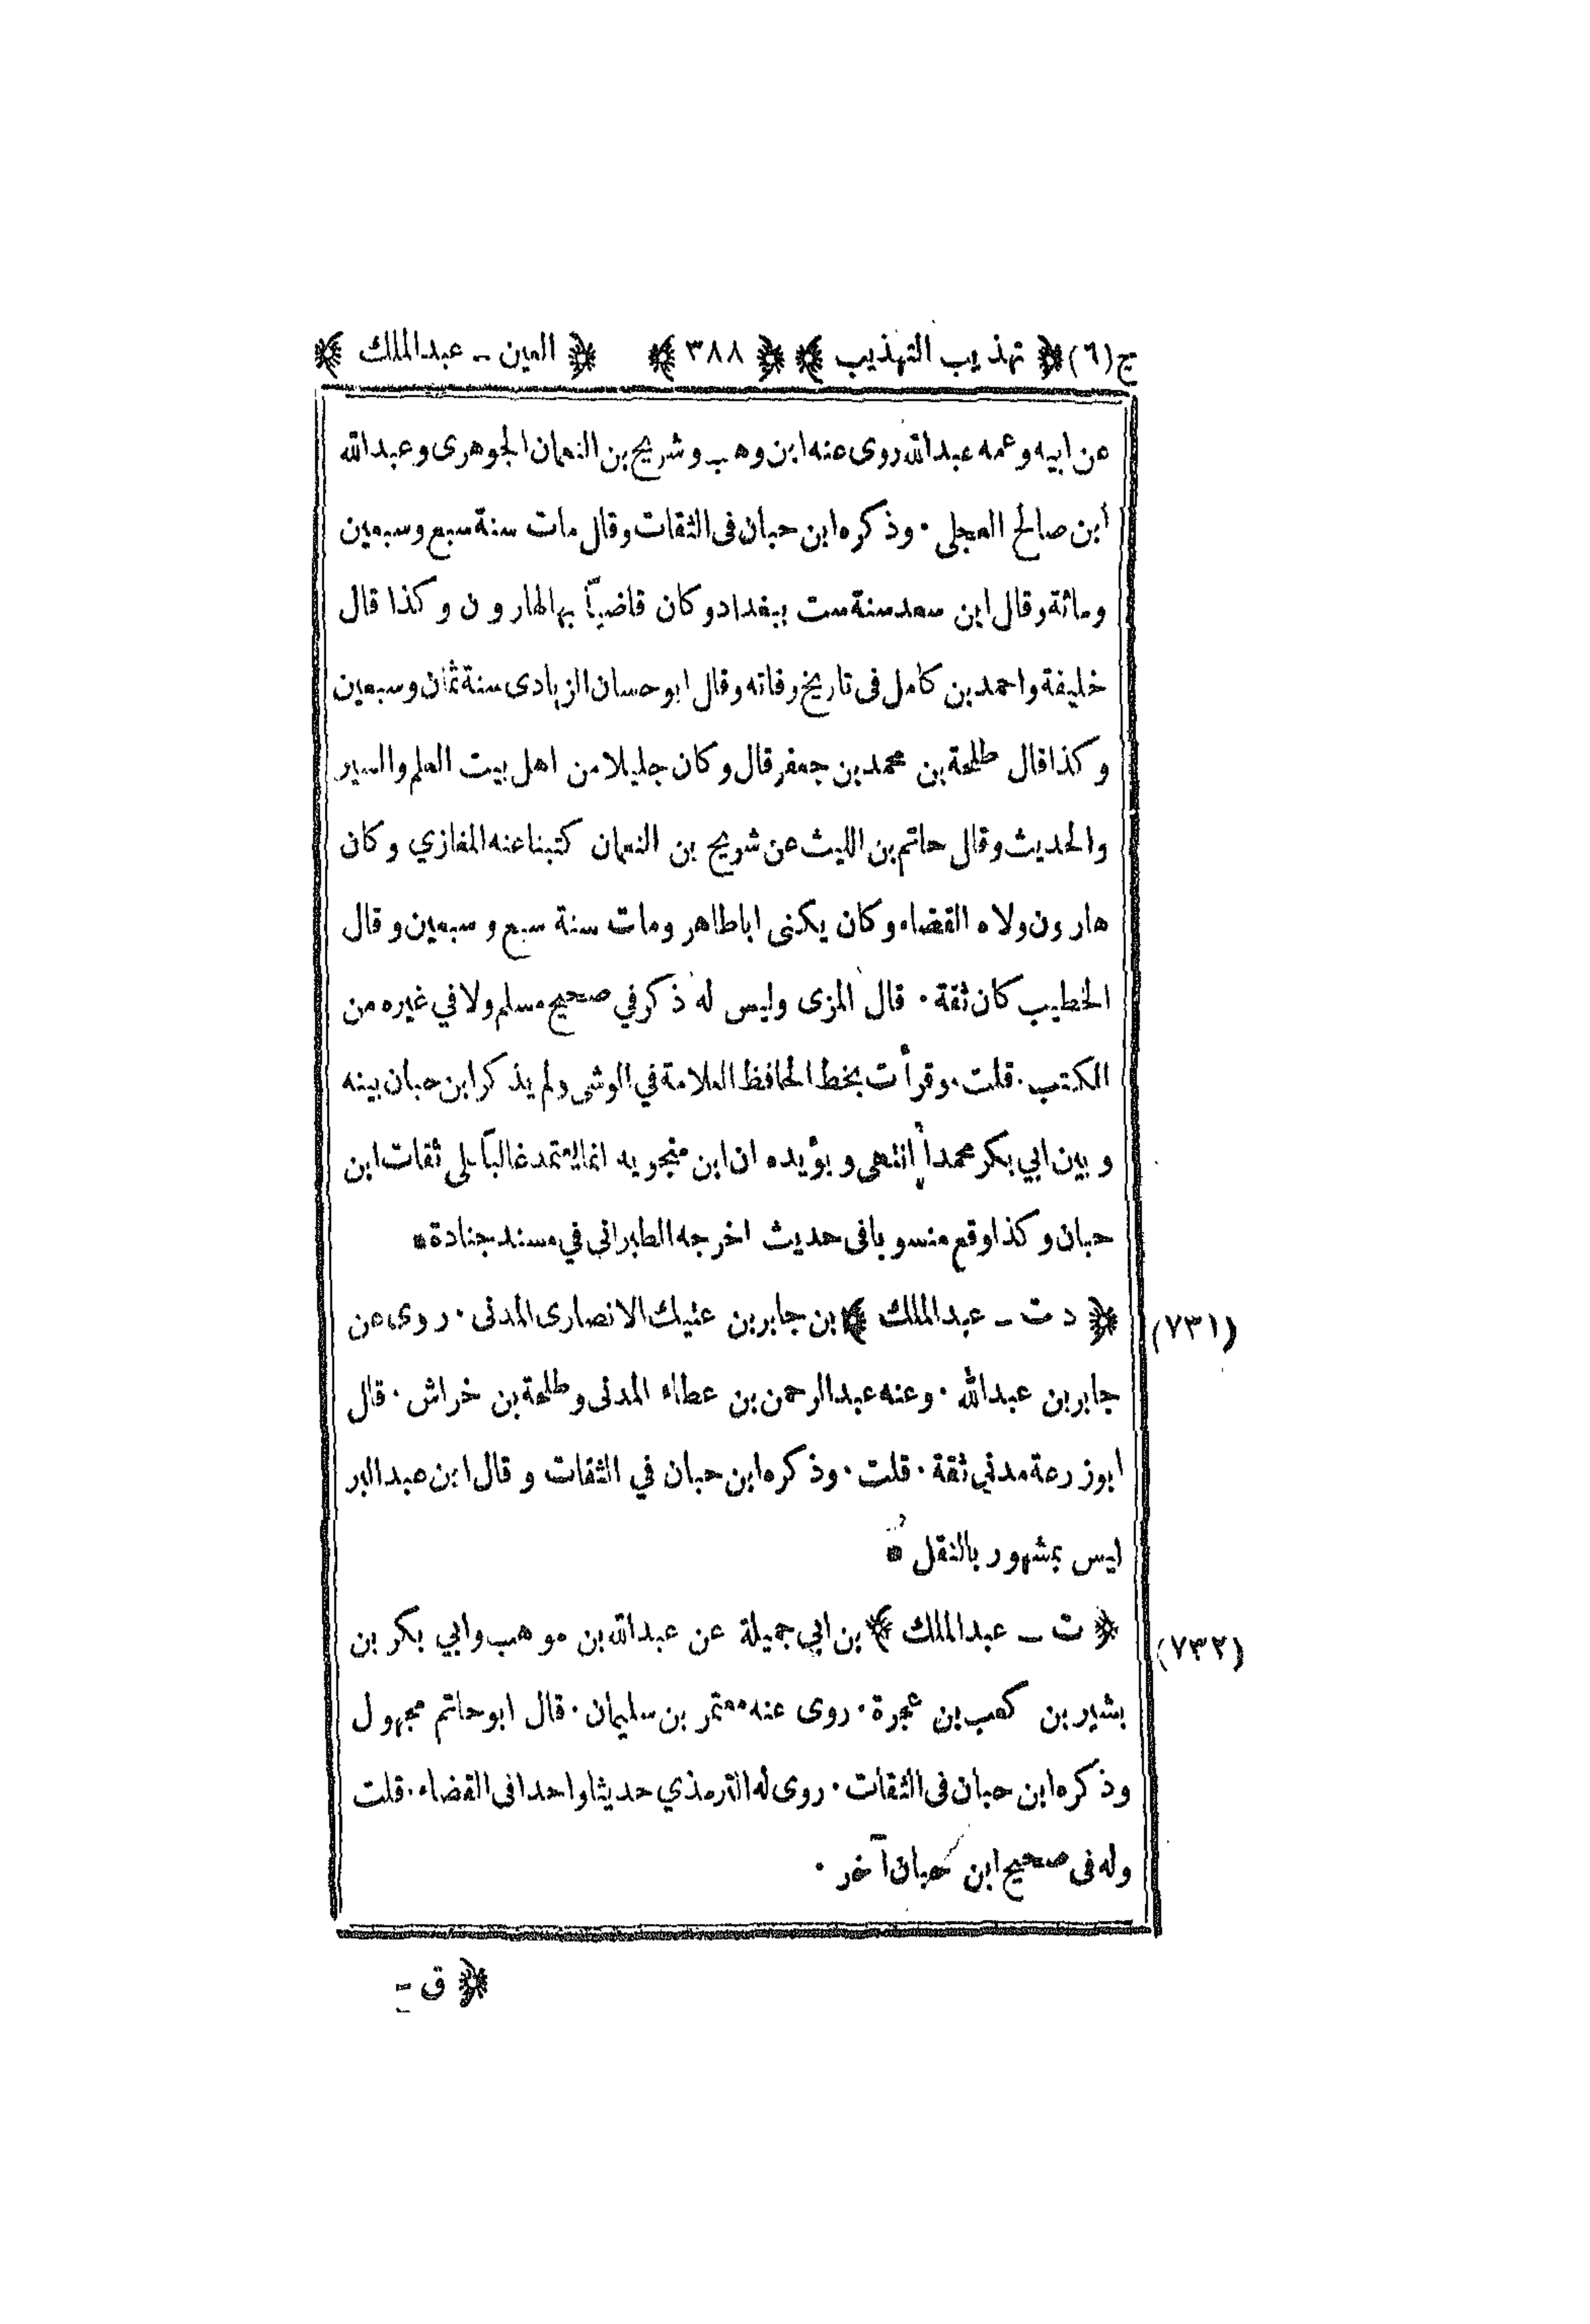 ج(٦) ﴿ تهذيب التهذيب ﴾ ﴿ ٣٨٨ ﴾ ﴿ العين ـ عبدالملك ﴾
عن ابيه وعمه عبدالله روى عنه ابن وهب وشريح بن النعمان الجوهرى وعبدالله
ابن صالح العجلى ٠ وذكره ابن حبان فى الثقات وقال مات سنة سبع وسبعين
ومائة وقال ابن سعد سنة ست ببغداد وكان قاضياً بها لهارون وكذا قال
خليفة واحمد بن كامل فى تاريخ وفاته وقال ابو حسان الزيادى سنة ثمان وسبعين
وكذا قال طلحة بن محمد بن جعفر قال وكان جليلا من اهل بيت العلم والسير
والحديث وقال حاتم بن الليث عن شريح بن النعمان كتبنا عنه المغازي وكان
هارون ولاه القضاء وكان يكنى اباطاهر ومات سنة سبع وسبعين وقال
الخطيب كان ثقة ٠ قال المزى وليس له ذكر في صحيح مسلم ولا في غيره من
الكتب ٠ قلت ٠ وقرأت بخط الحافظ العلامة في الوشى ولم يذكر ابن حبان بينه
وبين ابي بكر محمداً انتهى ويؤيده ان ابن منجويه انما يعتمد غالباً على ثقات ابن
حبان وكذا وقع منسوبا فى حديث اخرجه الطبرانى في مسند جنادة ٭
(٧٣١) ﴿ د ت ـ عبدالملك ﴾ بن جابر بن عتيك الانصارى المدنى ٠ روى عن
جابر بن عبدالله ٠ وعنه عبدالرحمن بن عطاء المدنى وطلحة بن خراش ٠ قال
ابوزرعة مدني ثقة ٠ قلت ٠ وذكره ابن حبان في الثقات وقال ابن عبدالبر
ليس بمشهور بالنقل ٭
(٧٣٢) ﴿ ت ـ عبدالملك ﴾ بن ابي جميلة عن عبدالله بن موهب وابي بكر بن
بشير بن كعب بن عجرة ٠ روى عنه معتمر بن سليمان ٠ قال ابوحاتم مجهول
وذكره ابن حبان فى الثقات ٠ روى له الترمذي حديثا واحدا فى القضاء ٠ قلت
وله فى صحيح ابن حبان آخر ٠
﴿ ق ـ